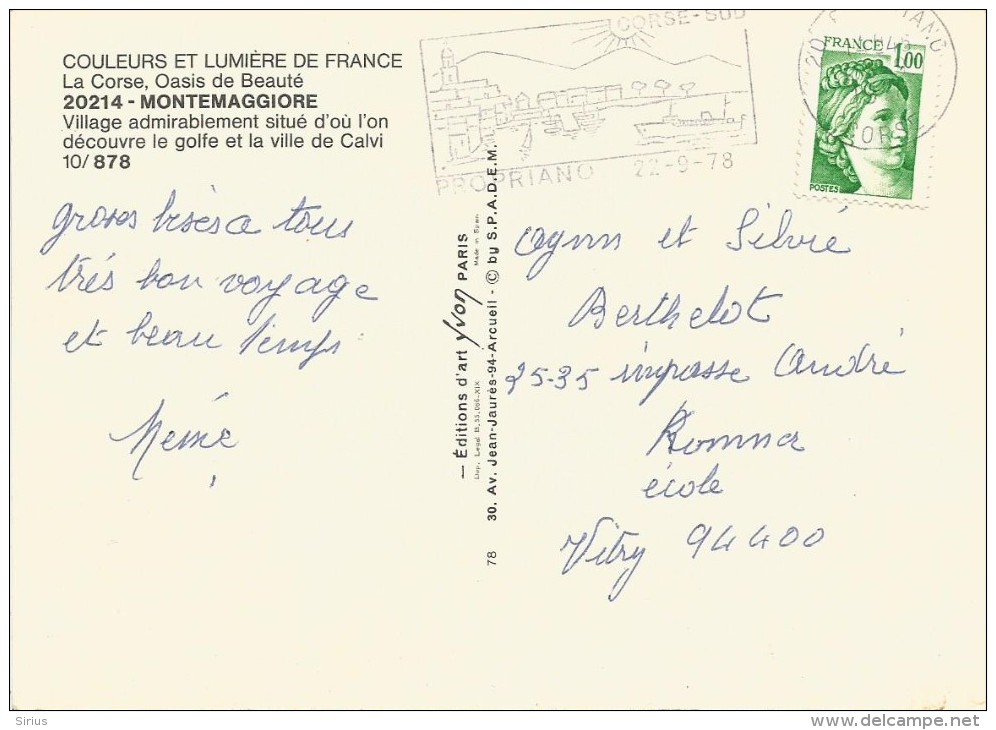 COULEURS ET LUMIÈRE DE FRANCE
La Corse, Oasis de Beauté
20214 - MONTEMAGGIORE
Village admirablement situé d'où l'on
découvre le golfe et la ville de Calvi
10/ 878
groses bises a tous
très bon voyage
et beau temps
Mémé
CORSE-SUD
PROPRIANO 22-9-78
FRANCE 1,00
POSTES
CORSE
— Éditions d'art Yvon PARIS
Made in Spain
Dep. Legal B.
78 30. Av. Jean-Jaurès-94-Arcueil - © by S.P.A.D.E.M.
et Silvié
Berthelot
25-35 impasse André
école
Vitry 94400
Sirius
www.delcampe.net